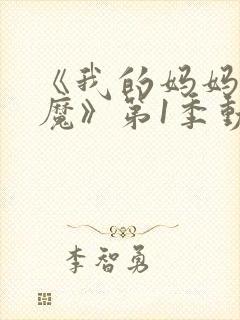 《我的妈妈
魔》第1季動
李智勇